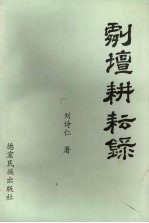 劇壇耕耘錄
刘诗仁 著
德宏民族出版社